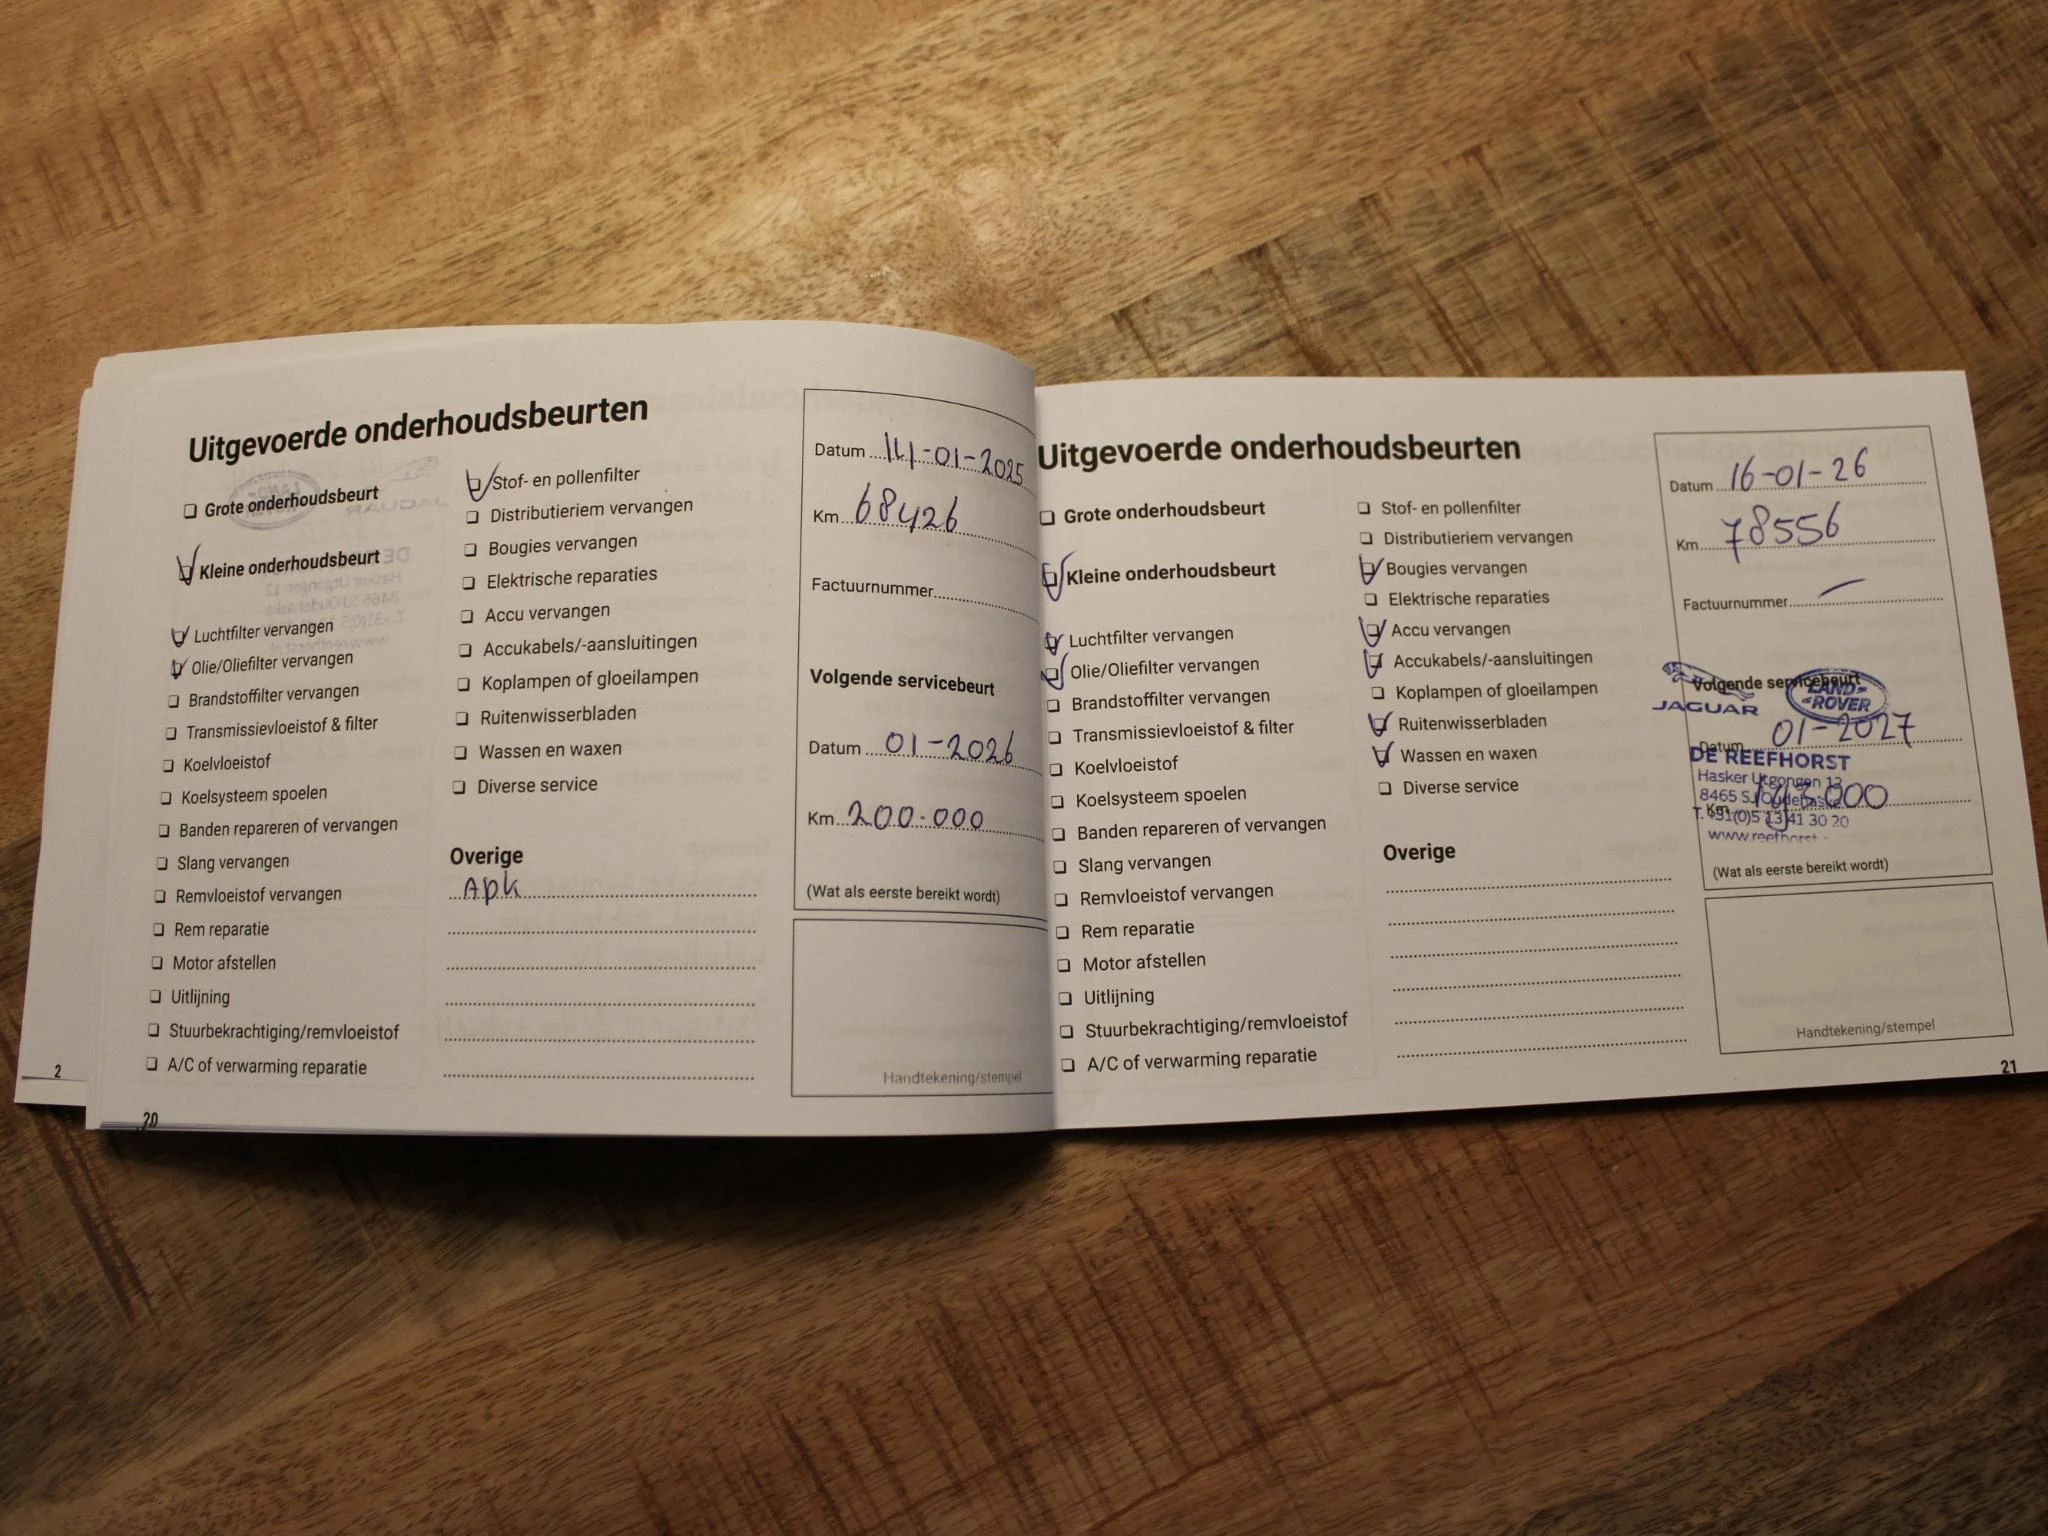 Uitgevoerde onderhoudsbeurten
Grote onderhoudsbeurt
Kleine onderhoudsbeurt
Luchtfilter vervangen
Olie/Oliefilter vervangen
Brandstoffilter vervangen
Transmissievloeistof & filter
Koelvloeistof
Koelsysteem spoelen
Banden repareren of vervangen
Slang vervangen
Remvloeistof vervangen
Rem reparatie
Motor afstellen
Uitlijning
Stuurbekrachtiging/remvloeistof
A/C of verwarming reparatie
Stof- en pollenfilter
Distributieriem vervangen
Bougies vervangen
Elektrische reparaties
Accu vervangen
Accukabels/-aansluitingen
Koplampen of gloeilampen
Ruitenwisserbladen
Wassen en waxen
Diverse service
Overige
Apk
Datum 14-01-2025
Km 68426
Factuurnummer
Volgende servicebeurt
Datum 01-2026
Km 200.000
(Wat als eerste bereikt wordt)
Handtekening/stempel
2
20
Uitgevoerde onderhoudsbeurten
Grote onderhoudsbeurt
Kleine onderhoudsbeurt
Luchtfilter vervangen
Olie/Oliefilter vervangen
Brandstoffilter vervangen
Transmissievloeistof & filter
Koelvloeistof
Koelsysteem spoelen
Banden repareren of vervangen
Slang vervangen
Remvloeistof vervangen
Rem reparatie
Motor afstellen
Uitlijning
Stuurbekrachtiging/remvloeistof
A/C of verwarming reparatie
Stof- en pollenfilter
Distributieriem vervangen
Bougies vervangen
Elektrische reparaties
Accu vervangen
Accukabels/-aansluitingen
Koplampen of gloeilampen
Ruitenwisserbladen
Wassen en waxen
Diverse service
Overige
Datum 16-01-26
Km 78556
Factuurnummer
Volgende servicebeurt
JAGUAR
LAND-
ROVER
Datum 01-2027
DE REEFHORST
Hasker Utgongen 12
8465 SJ Oudehaske
Km
T. +31(0)5 13 41 30 20
www.reefhorst
(Wat als eerste bereikt wordt)
Handtekening/stempel
21